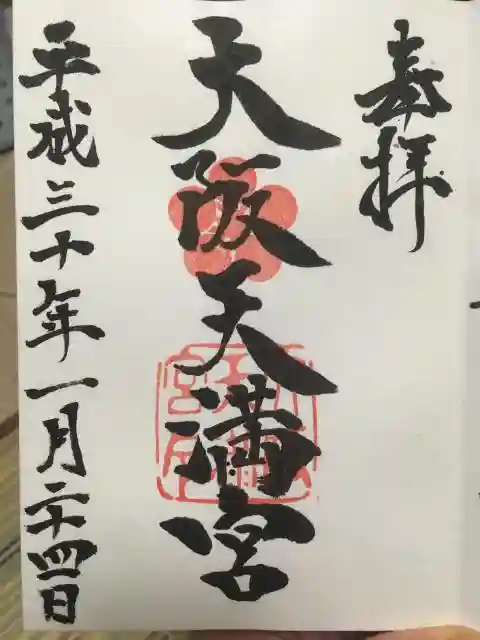 奉拝
大阪天満宮
平成三十年一月二十四日